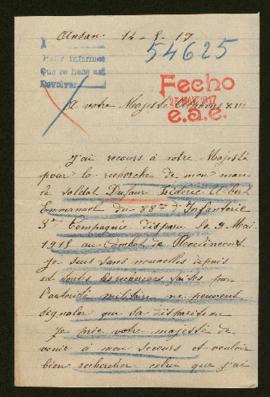 14-5-17
54625
A
Para informe
Que se hace así
Devolver
Fecho
e.a.e.
A votre Majesté Alphonse XIII
J'ai recours à votre Majesté
pour la recherche de mon mari
le soldat Dufaur Frédéric
du 88e d'Infanterie
5e Compagnie disparu le 9 Mai
1915 au combat de
Je suis sans nouvelles depuis
et toutes les recherches faites par
l'autorité militaire ne peuvent
signaler que sa disparition
Je prie votre majesté de
venir à mon secours et vouloir
bien rechercher celui que j'ai